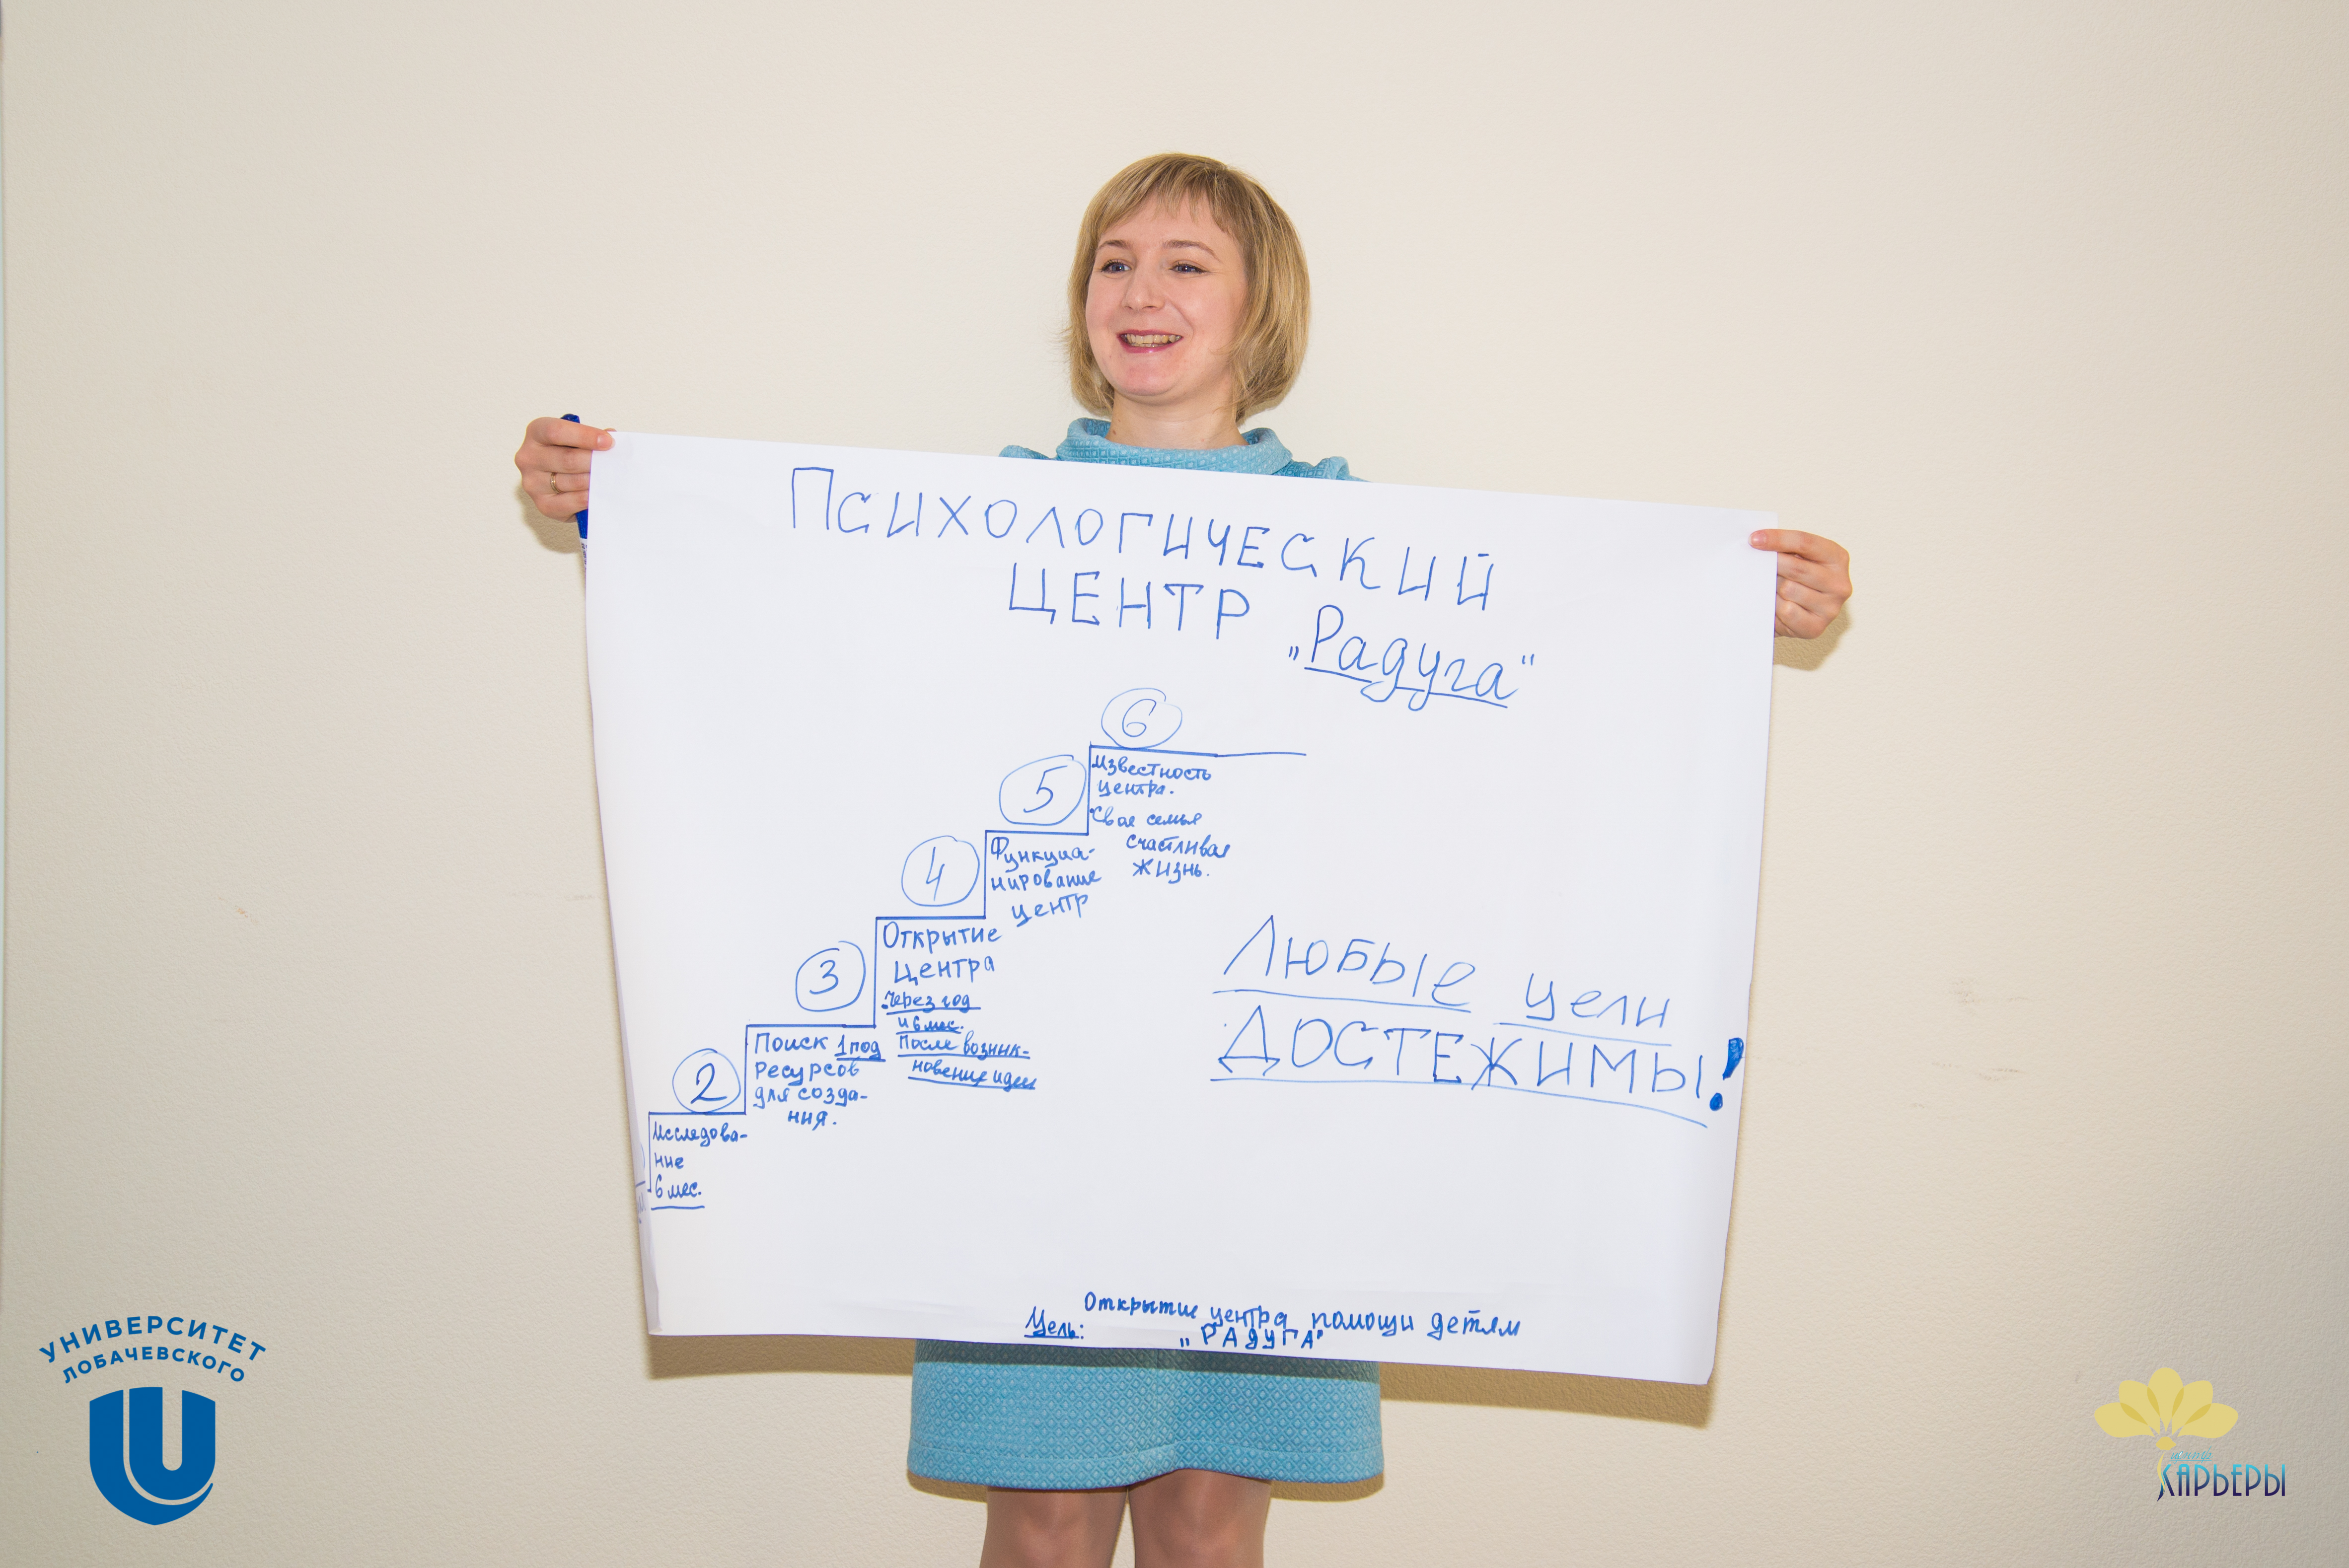 Психологический
ЦЕНТР „Радуга“
6
Известность
центра.
Своя семья
счастливая
жизнь.
5
Функциа-
нирование
центр
4
Открытие
центра
Через год
и 6 мес.
После возник-
новение идеи
3
Поиск 1 под
Ресурсов
для созда-
ния.
2
Исследова-
ние
6 мес.
Любые цели
ДОСТЕЖИМЫ!
Цель: Открытие центра помощи детям
„РАДУГА“
УНИВЕРСИТЕТ
ЛОБАЧЕВСКОГО
центр
КАРЬЕРЫ